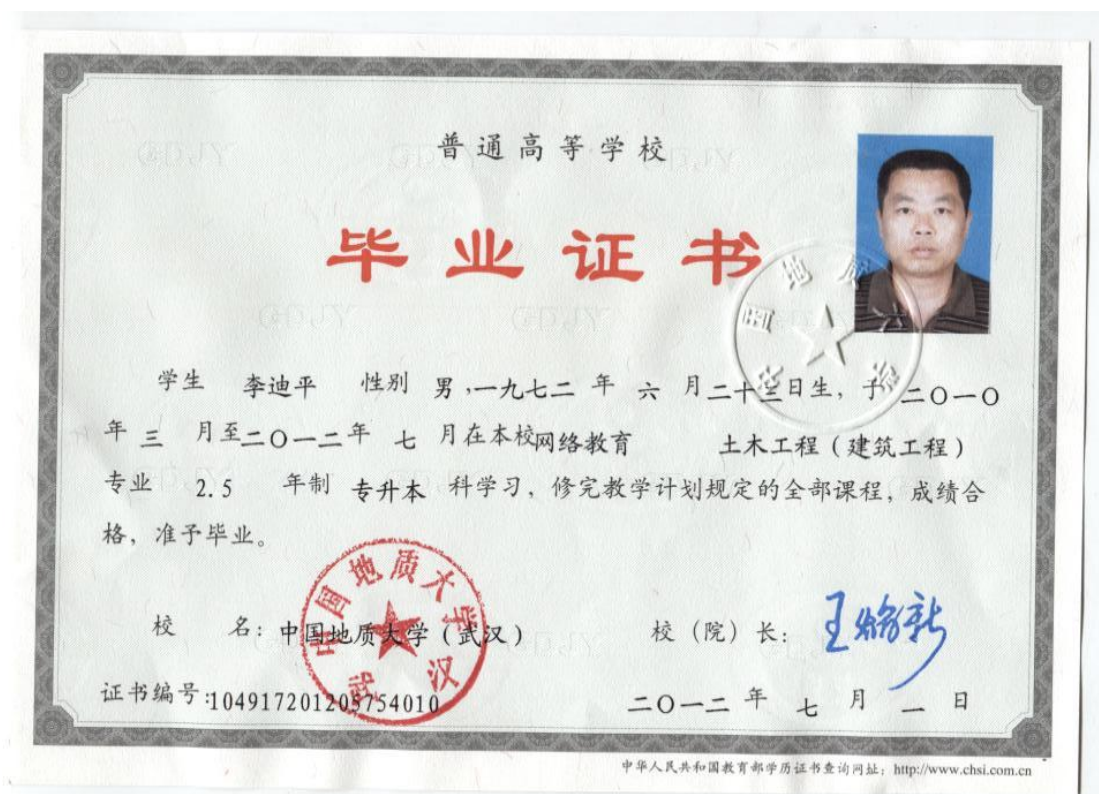 普通高等学校
毕业证书
学生 李迪平 性别 男,一九七二 年 六 月二十三日生，于 二〇一〇
年 三 月至二〇一二年 七 月在本校网络教育 土木工程（建筑工程）
专业 2.5 年制 专升本 科学习，修完教学计划规定的全部课程，成绩合
格，准予毕业。
中国地质大学
武汉
校 名：中国地质大学（武汉） 校（院）长：
证书编号:104917201205754010 二〇一二 年 七 月 一 日
中华人民共和国教育部学历证书查询网址：http://www.chsi.com.cn